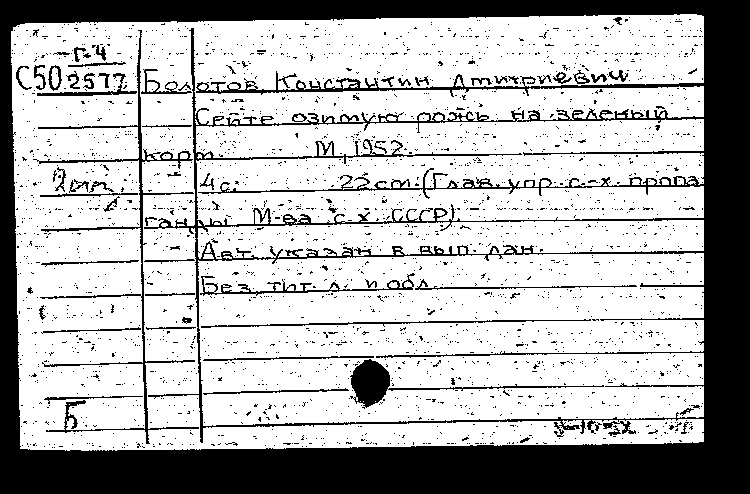 Г-4
С50 2577 Болотов, Константин Дмитриевич
Сейте озимую рожь на зеленый
корм. М., 1952.
2 экз. 4 с. 22 см. (Глав. упр. с.-х. пропа-
ганды М-ва с.х. СССР).
Авт. указан в вып. дан.
Без тит. л. и обл.
Б